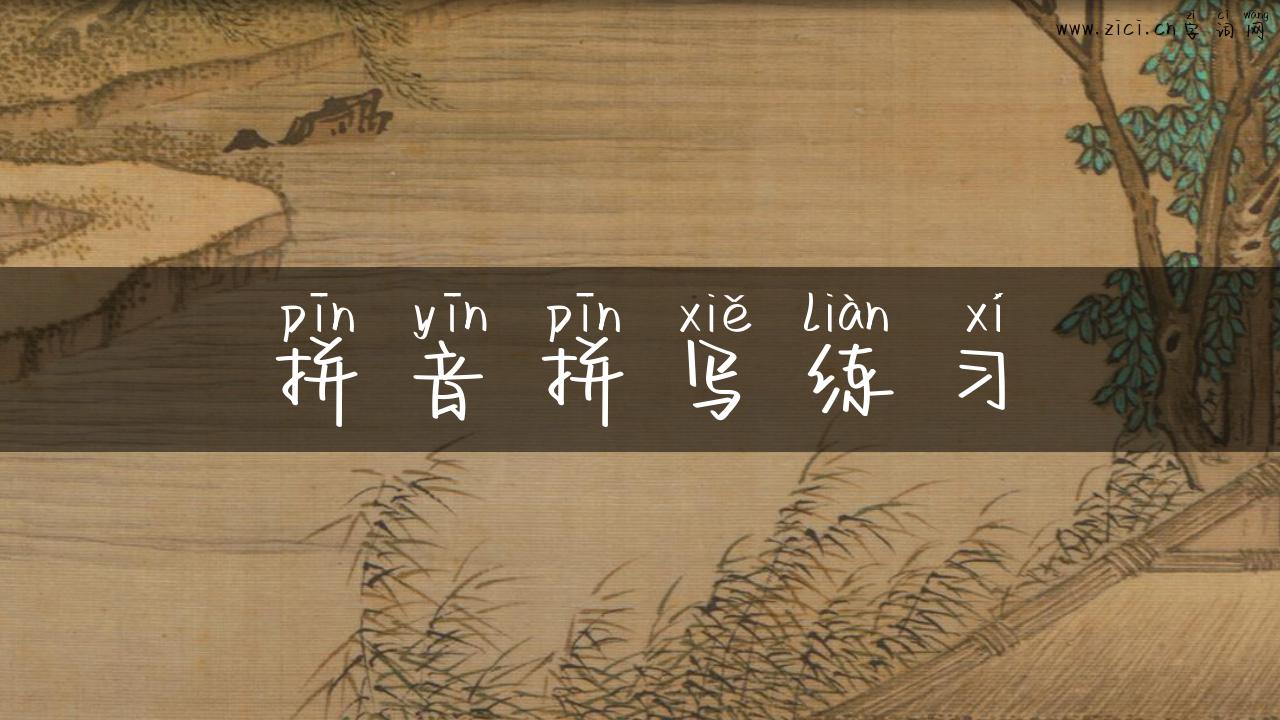 zì cí wǎng
www.zici.cn字词网
pīn yīn pīn xiě liàn xí
拼音拼写练习